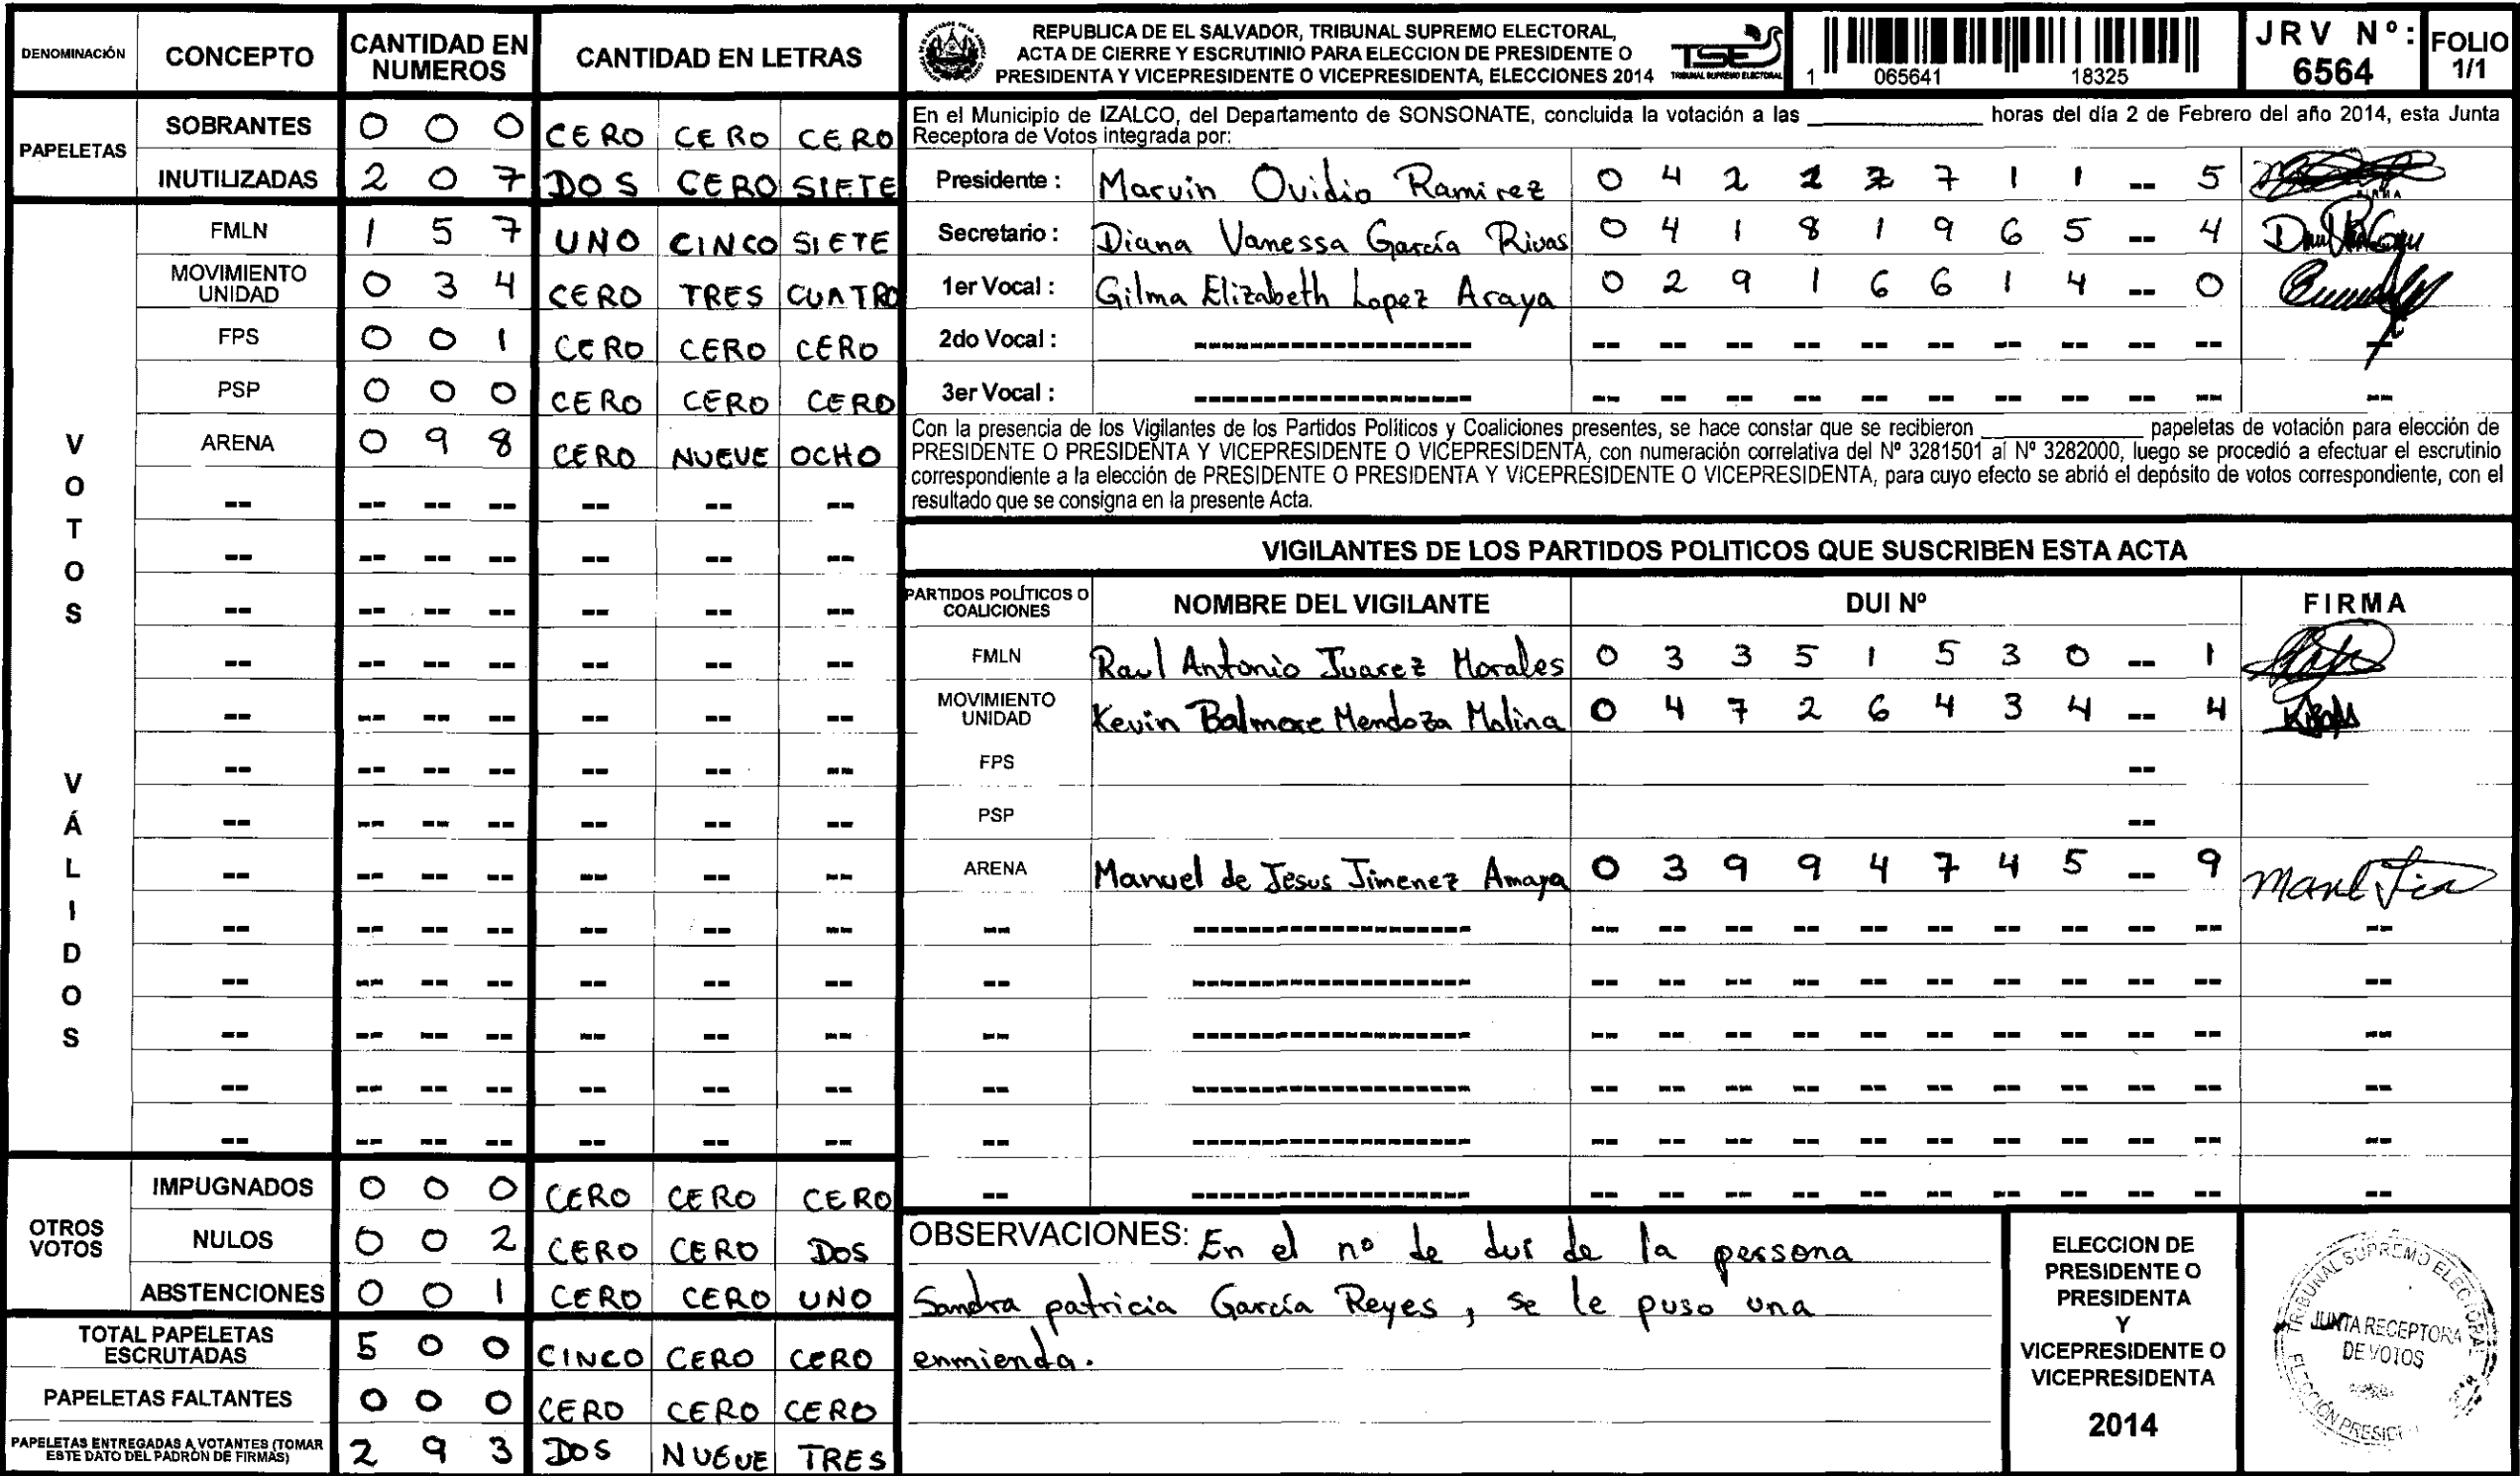 DENOMINACIÓN CONCEPTO CANTIDAD EN NUMEROS CANTIDAD EN LETRAS
PAPELETAS
SOBRANTES 0 0 0 CERO CERO CERO
INUTILIZADAS 2 0 7 DOS CERO SIETE
VOTOS VÁLIDOS
FMLN 1 5 7 UNO CINCO SIETE
MOVIMIENTO UNIDAD 0 3 4 CERO TRES CUATRO
FPS 0 0 1 CERO CERO CERO
PSP 0 0 0 CERO CERO CERO
ARENA 0 9 8 CERO NUEVE OCHO
-- -- -- -- -- -- --
-- -- -- -- -- -- --
-- -- -- -- -- -- --
-- -- -- -- -- -- --
-- -- -- -- -- -- --
-- -- -- -- -- -- --
-- -- -- -- -- -- --
-- -- -- -- -- -- --
-- -- -- -- -- -- --
-- -- -- -- -- -- --
-- -- -- -- -- -- --
-- -- -- -- -- -- --
-- -- -- -- -- -- --
OTROS VOTOS
IMPUGNADOS 0 0 0 CERO CERO CERO
NULOS 0 0 2 CERO CERO DOS
ABSTENCIONES 0 0 1 CERO CERO UNO
TOTAL PAPELETAS ESCRUTADAS 5 0 0 CINCO CERO CERO
PAPELETAS FALTANTES 0 0 0 CERO CERO CERO
PAPELETAS ENTREGADAS A VOTANTES (TOMAR ESTE DATO DEL PADRÓN DE FIRMAS) 2 9 3 DOS NUEVE TRES
REPUBLICA DE EL SALVADOR, TRIBUNAL SUPREMO ELECTORAL,
ACTA DE CIERRE Y ESCRUTINIO PARA ELECCION DE PRESIDENTE O
PRESIDENTA Y VICEPRESIDENTE O VICEPRESIDENTA, ELECCIONES 2014
TSE
TRIBUNAL SUPREMO ELECTORAL
1 065641 18325
JRV Nº: 6564
FOLIO 1/1
En el Municipio de IZALCO, del Departamento de SONSONATE, concluida la votación a las ____________ horas del día 2 de Febrero del año 2014, esta Junta
Receptora de Votos integrada por:
Presidente : Marvin Ovidio Ramirez 0 4 2 2 7 1 1 -- 5
Secretario : Diana Vanessa García Rivas 0 4 1 8 1 9 6 5 -- 4
1er Vocal : Gilma Elizabeth Lopez Araya 0 2 9 1 6 6 1 4 -- 0
2do Vocal : -------------------- -- -- -- -- -- -- -- -- -- -- --
3er Vocal : -------------------- -- -- -- -- -- -- -- -- -- -- --
Con la presencia de los Vigilantes de los Partidos Políticos y Coaliciones presentes, se hace constar que se recibieron ____________ papeletas de votación para elección de
PRESIDENTE O PRESIDENTA Y VICEPRESIDENTE O VICEPRESIDENTA, con numeración correlativa del Nº 3281501 al Nº 3282000, luego se procedió a efectuar el escrutinio
correspondiente a la elección de PRESIDENTE O PRESIDENTA Y VICEPRESIDENTE O VICEPRESIDENTA, para cuyo efecto se abrió el depósito de votos correspondiente, con el
resultado que se consigna en la presente Acta.
VIGILANTES DE LOS PARTIDOS POLITICOS QUE SUSCRIBEN ESTA ACTA
PARTIDOS POLÍTICOS O COALICIONES NOMBRE DEL VIGILANTE DUI Nº FIRMA
FMLN Raul Antonio Juarez Morales 0 3 3 5 1 5 3 0 -- 1
MOVIMIENTO UNIDAD Kevin Balmore Mendoza Molina 0 4 7 2 6 4 3 4 -- 4
FPS --
PSP --
ARENA Manuel de Jesus Jimenez Amaya 0 3 9 9 4 7 4 5 -- 9
-- -------------------- -- -- -- -- -- -- -- -- -- -- --
-- -------------------- -- -- -- -- -- -- -- -- -- -- --
-- -------------------- -- -- -- -- -- -- -- -- -- -- --
-- -------------------- -- -- -- -- -- -- -- -- -- -- --
-- -------------------- -- -- -- -- -- -- -- -- -- -- --
-- -------------------- -- -- -- -- -- -- -- -- -- -- --
OBSERVACIONES: En el nº de dui de la persona
Sandra patricia García Reyes, se le puso una
enmienda.
ELECCION DE
PRESIDENTE O
PRESIDENTA
Y
VICEPRESIDENTE O
VICEPRESIDENTA
2014
TRIBUNAL SUPREMO ELECTORAL
JUNTA RECEPTORA
DE VOTOS